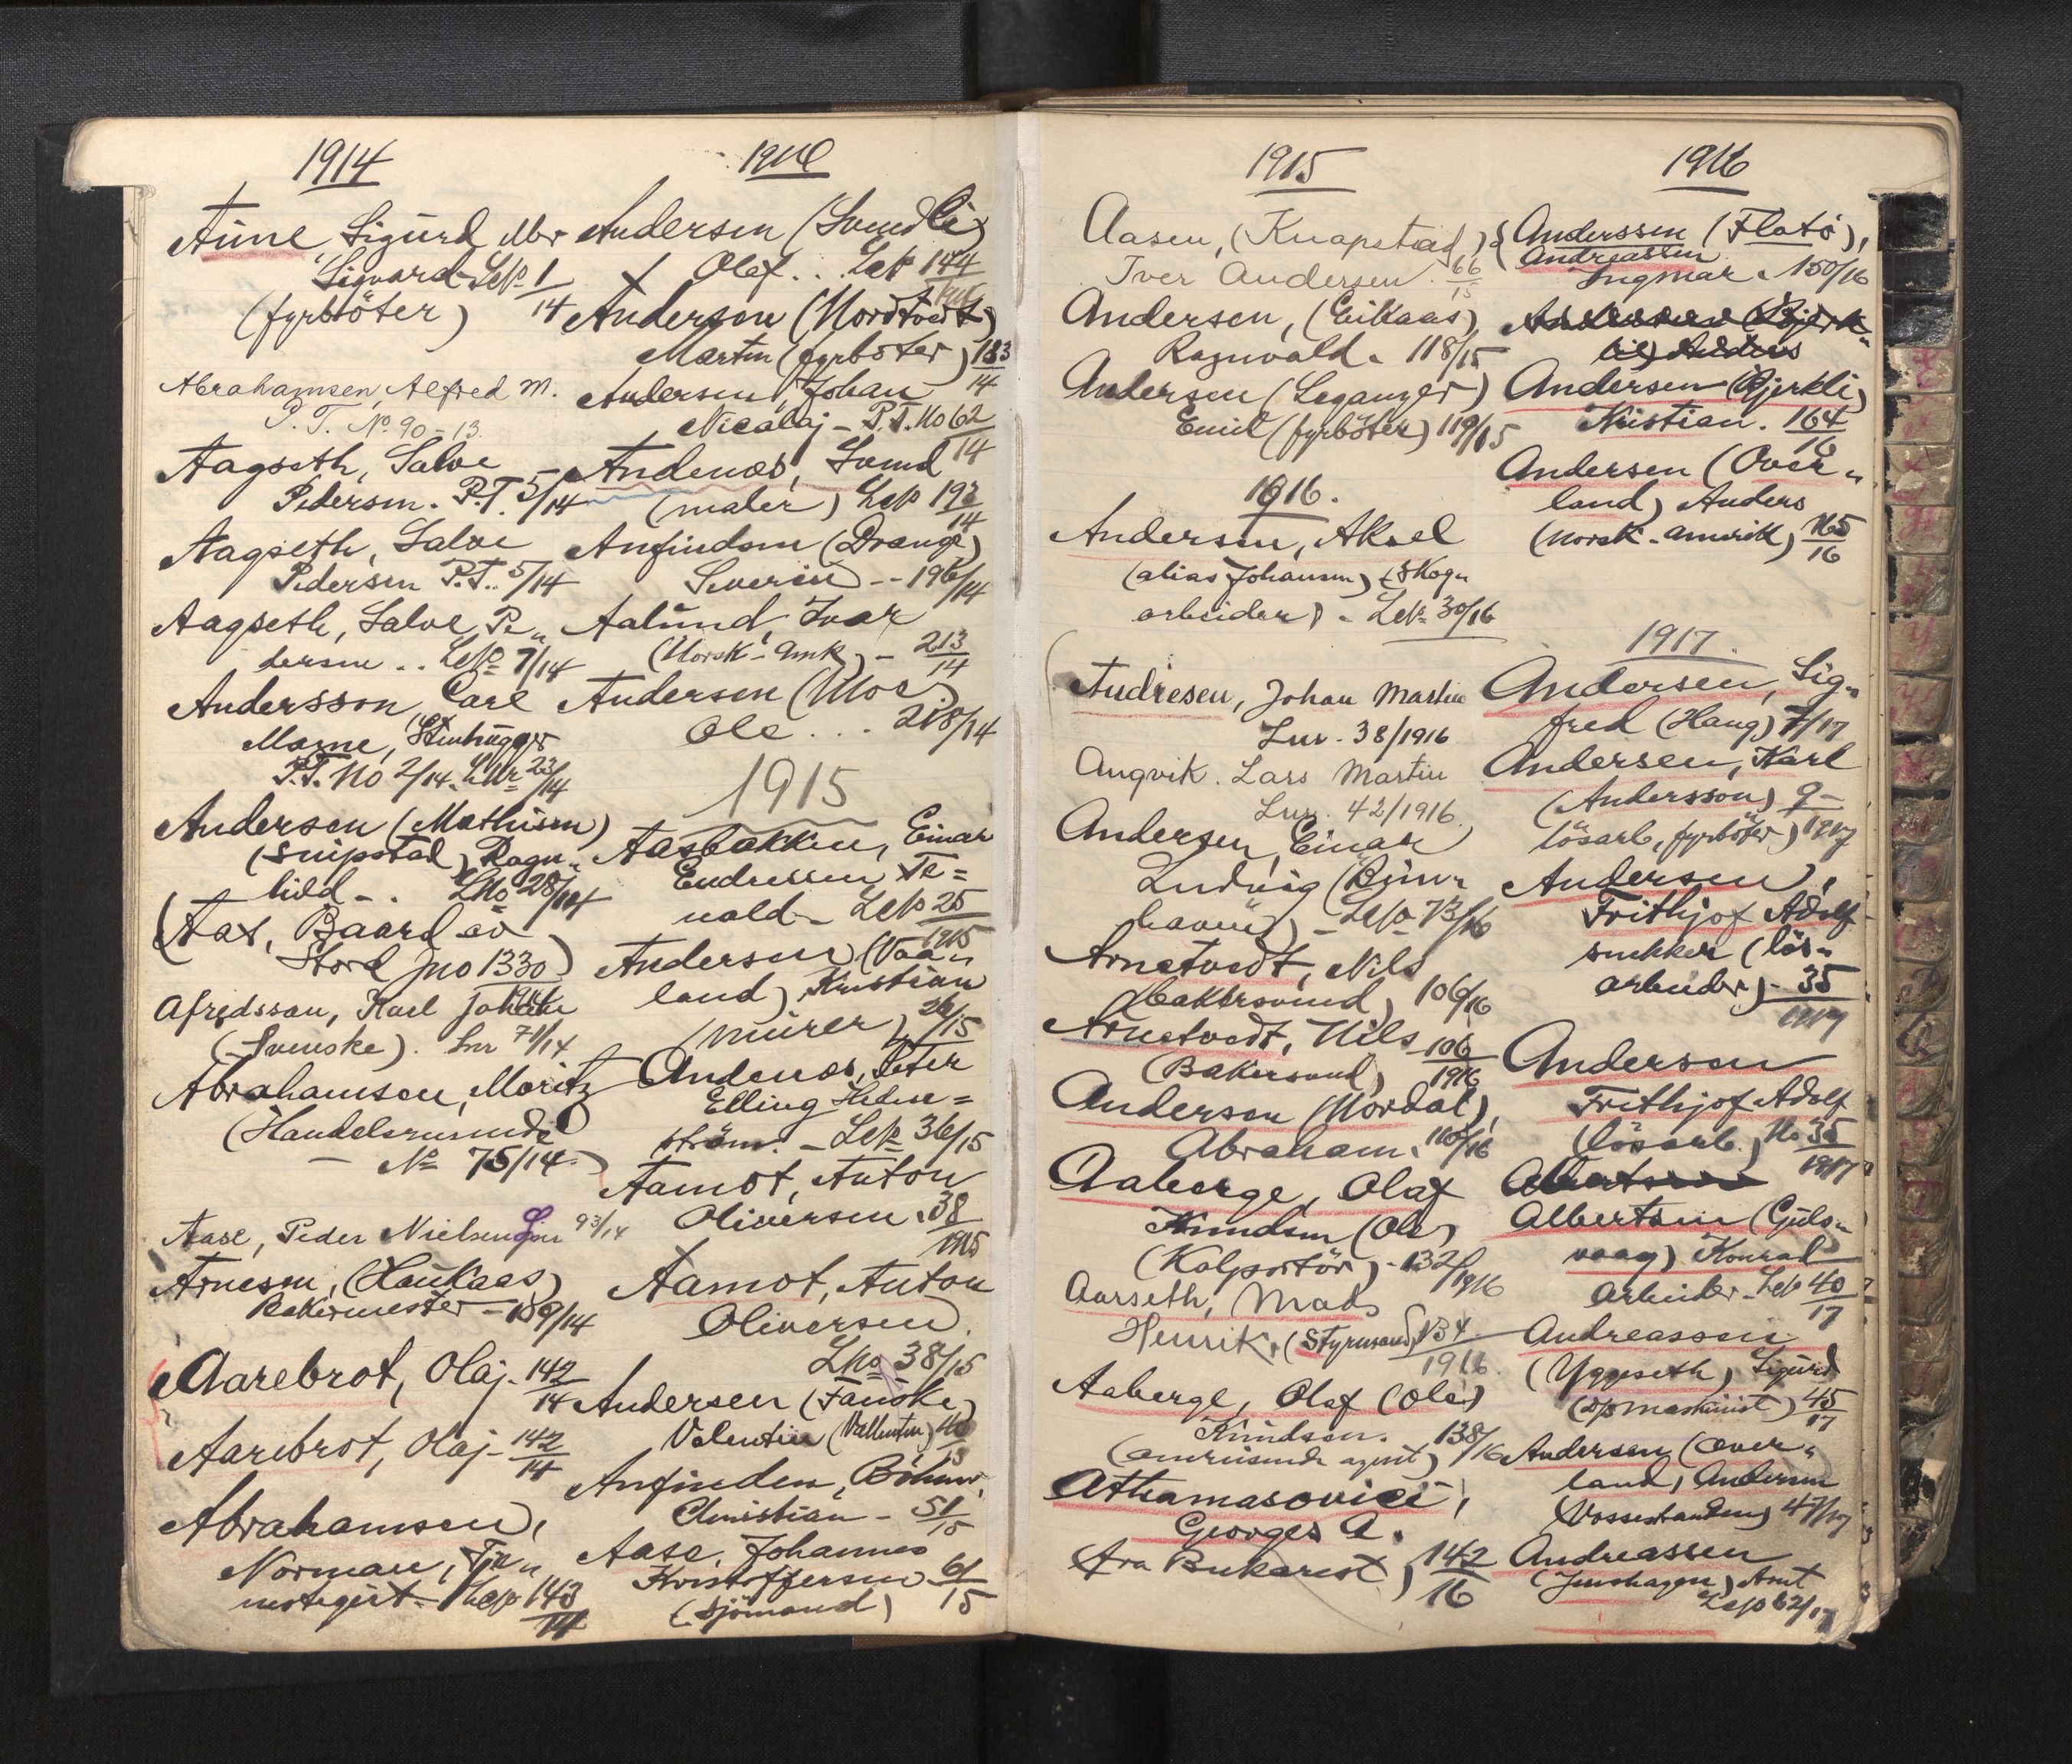 1914
Aune, Sigurd
Sigvard - Lep 1/14
(fyrböter)
Abrahamsen, Alfred M.
P.T. No. 90-13.
Aagseth, Salve
Pedersen. P.T. 5/14
Aagseth, Salve
Pedersen P.T. 5/14
Aagseth, Salve Pe„
dersen .. Lep 7/14
Andersson, Carl
Magne,
P.T. No 2/14. 23/14
Andersen (Mathisen)
(Snipstad) Ragn„
hild - . 28/1914
(Aas, Baard av
Stord Jno 1330)
Alfredsson, Karl
(Svenske). Lnr 71/14
Abrahamsen, Moritz
(Handelsreisende)
- No 75/14 -
Aase, Peder Nielsen 93/14
Arnesen, (Haukaas)
Bakermester - 109/14
Aarebrot, Olaj. 142/14
Aarebrot, Olaj - 142/14
Abrahamsen,
Norman,
Lep 143/14
1914
Andersen (Svendli)
x Olaf .. Lep 144
Andersen (Nordtvedt)
Martin (fyrböter) 183/14
Andersen, Johan
Nicolaj - P.T. No 62/14
Andenæs, Svend
(maler) Lep 193/14
Anfindsen (Drange)
Severin -- 196/14
Aalund, Ivar
(Norsk-Amk) - 213/14
Andersen (Moe)
Ole ... 218/14
1915
Aasbakken, Einar
Endresen, Te=
vald - Lep 25/1915
Andersen (Vaa„
land), Kristian
(murer) 26/15
Andenæs, Peter
Elling Hedne=
ström. - Lep 36/15
Aamot, Anton
Oliversen. 38/1915
Aamot, Anton
Oliversen.
38/15
Andersen (Fauske)
Valentin (Vallentin) 40/15
Anfinden, Böhmer,
Christian - 51/15
Aase, Johannes
Kristoffersen 61/15
(Sjömand)
1915
Aasen, (Knapstad)
Iver Andersen. 66/15
Andersen, (Eikaas),
Ragnvald. 118/15
Andersen (Leganger)
Emil (fyrböter) 119/15
1916.
Andersen, Aksel
(alias Johansen) (Skogn
arbeider). Lep 30/16
Andresen, Johan Martin
Lnr. 38/1916
Angvik. Lars Martin
Lnr. 42/1916.
Andersen, Einar
Ludvig
- Lep 73/16
Arnetvedt, Nils
(Bakersvend) 106/16
Arnetvedt, Nils 106/1916
(Bakersvend)
Andersen (Nordal),
Abraham. 110/16
Aaberge, Olaf
Knudsen (Ole)
(Kolportör) - 132/1916
Aarseth, Mads
Henrik, (Styrmand) 134/1916.
Aaberge, Olaf (Ole)
Knudsen. 138/16
(omreisende agent)
Athamasovici,
Georges A.
fra Bukarest) 142/16
1916
Anderssen (Flatö),
Andreassen
Ingmar. 150/16
Andersen (Bjerkli)
Kristian. 164/16
Andersen (Over„
land) Anders
(norsk-amerik) 165/16
1917.
Andersen, Sig„
fred (Haug) 7/17
Andersen, Karl
(Andersson) 9/1917
lösarb, fyrböter)
Andersen,
Frithjof Adolf
snekker (lös„
arbeider) - 35/1917
Andersen
Frithjof Adolf
(lösarb.) No 35/1917
Albertsen (Gulo„
vaag) Konrad
Arbeider. Lep 40/17
Andreassen
(Yggeseth) Sigurd
(D/S maskinist) 45/17
Andersen (Over„
land) Andersen
(Vossestranden) 47/17
Andreassen
(Jenshagen) Arnt
Lep 62/17